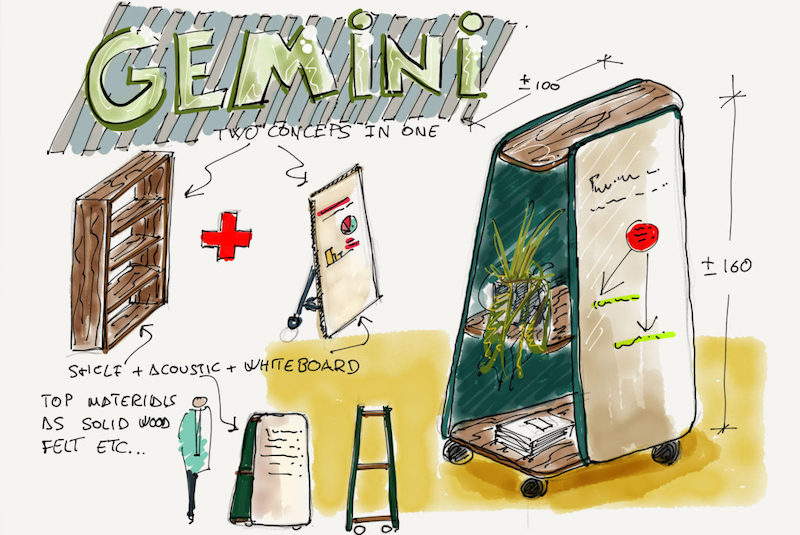 GEMiNi
TWO CONCEPS IN ONE
± 100
± 160
SHELF + ACOUSTIC + WHITEBOARD
TOP MATERIALS
AS SOLID WOOD
FELT ETC...